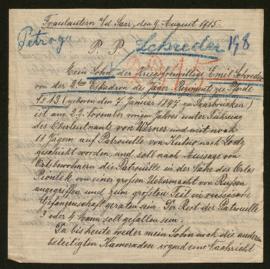 Fraulautern a/d Saar, den 9. August 1915.
Petroga
P. P. Schreder 198
Mein Sohn, der Kriegsfreiwillige Emil Schreder
von der 2ten Eskadron des Jäger Regiment zu Pferde
N: 13 (geboren den 7. Januar 1897 zu Saarbrücken)
ist am 22. November vorigen Jahres unter Führung
des Oberleutnants von und wohl
11 Jägern auf Patrouille von Kutno nach Lodz
geschickt worden, und soll nach Aussage von
Ortsbewohnern die Patrouille in der Nähe des Ortes
Piontek von einer großen Uebermacht von Russen
angegriffen und zum größten Teil in russische
Gefangenschaft geraten sein. Der Rest der Patrouille
3 oder 4 Mann soll gefallen sein.
Da bis heute weder mein Sohn noch die anderen
beteiligten Kameraden irgend eine Nachricht